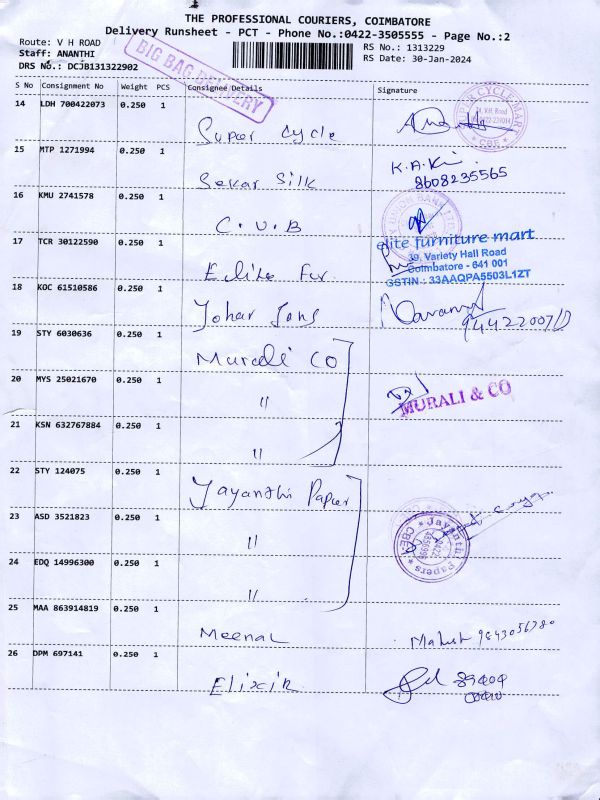 THE PROFESSIONAL COURIERS, COIMBATORE
Delivery Runsheet - PCT - Phone No.:0422-3505555 - Page No.:2
Route: V H ROAD
Staff: ANANTHI
DRS No.: DCJB131322902
RS No.: 1313229
RS Date: 30-Jan-2024
BIG BAG DELIVERY
S No Consignment No Weight PCS Consignee Details Signature
14 LDH 700422073 0.250 1 Super Cycle
15 MTP 1271994 0.250 1 Sekar Silk K.A.K 8608235565
16 KMU 2741578 0.250 1 C.U.B
17 TCR 30122590 0.250 1 Elite Fur.
elite furniture mart
39, Variety Hall Road
Coimbatore - 641 001
GSTIN : 33AAQPA5503L1ZT
18 KOC 61510586 0.250 1 Johar Sons
19 STY 6030636 0.250 1 Murali CO
20 MYS 25021670 0.250 1 "
MURALI & CO
21 KSN 632767884 0.250 1 "
22 STY 124075 0.250 1 Jayanthi Paper
23 ASD 3521823 0.250 1 "
Jayanthi Papers
24 EDQ 14996300 0.250 1 "
25 MAA 863914819 0.250 1 Meenal Mahesh
26 DPM 697141 0.250 1 Elixir